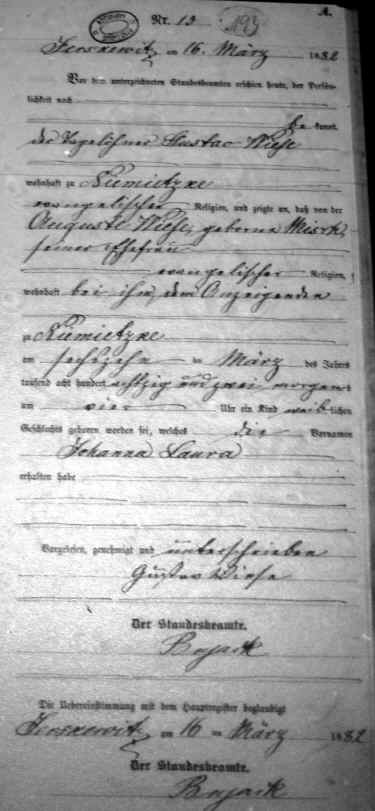 A.
Nr. 13
193
Jerskewitz am 16. März 1882
Vor dem unterzeichneten Standesbeamten erschien heute, der Persön-
lichkeit nach
be kannt,
der Tagelöhner Gustav Wiese
wohnhaft zu Niemietzke
evangelischer Religion, und zeigte an, daß von der
Auguste Wiese, geborne
seiner Ehefrau
evangelischer Religion,
wohnhaft bei ihm dem Anzeigenden
zu Niemietzke
am sechszehn ten März des Jahres
tausend acht hundert achtzig und zwei morgens
um vier Uhr ein Kind weib lichen
Geschlechts geboren worden sei, welches die Vornamen
Johanna Laura
erhalten habe
Vorgelesen, genehmigt und unterschrieben
Gustav Wiese
Der Standesbeamte.
Bojack
Die Uebereinstimmung mit dem Hauptregister beglaubigt
Jerskewitz am 16 ten März 1882
Der Standesbeamte.
Bojack